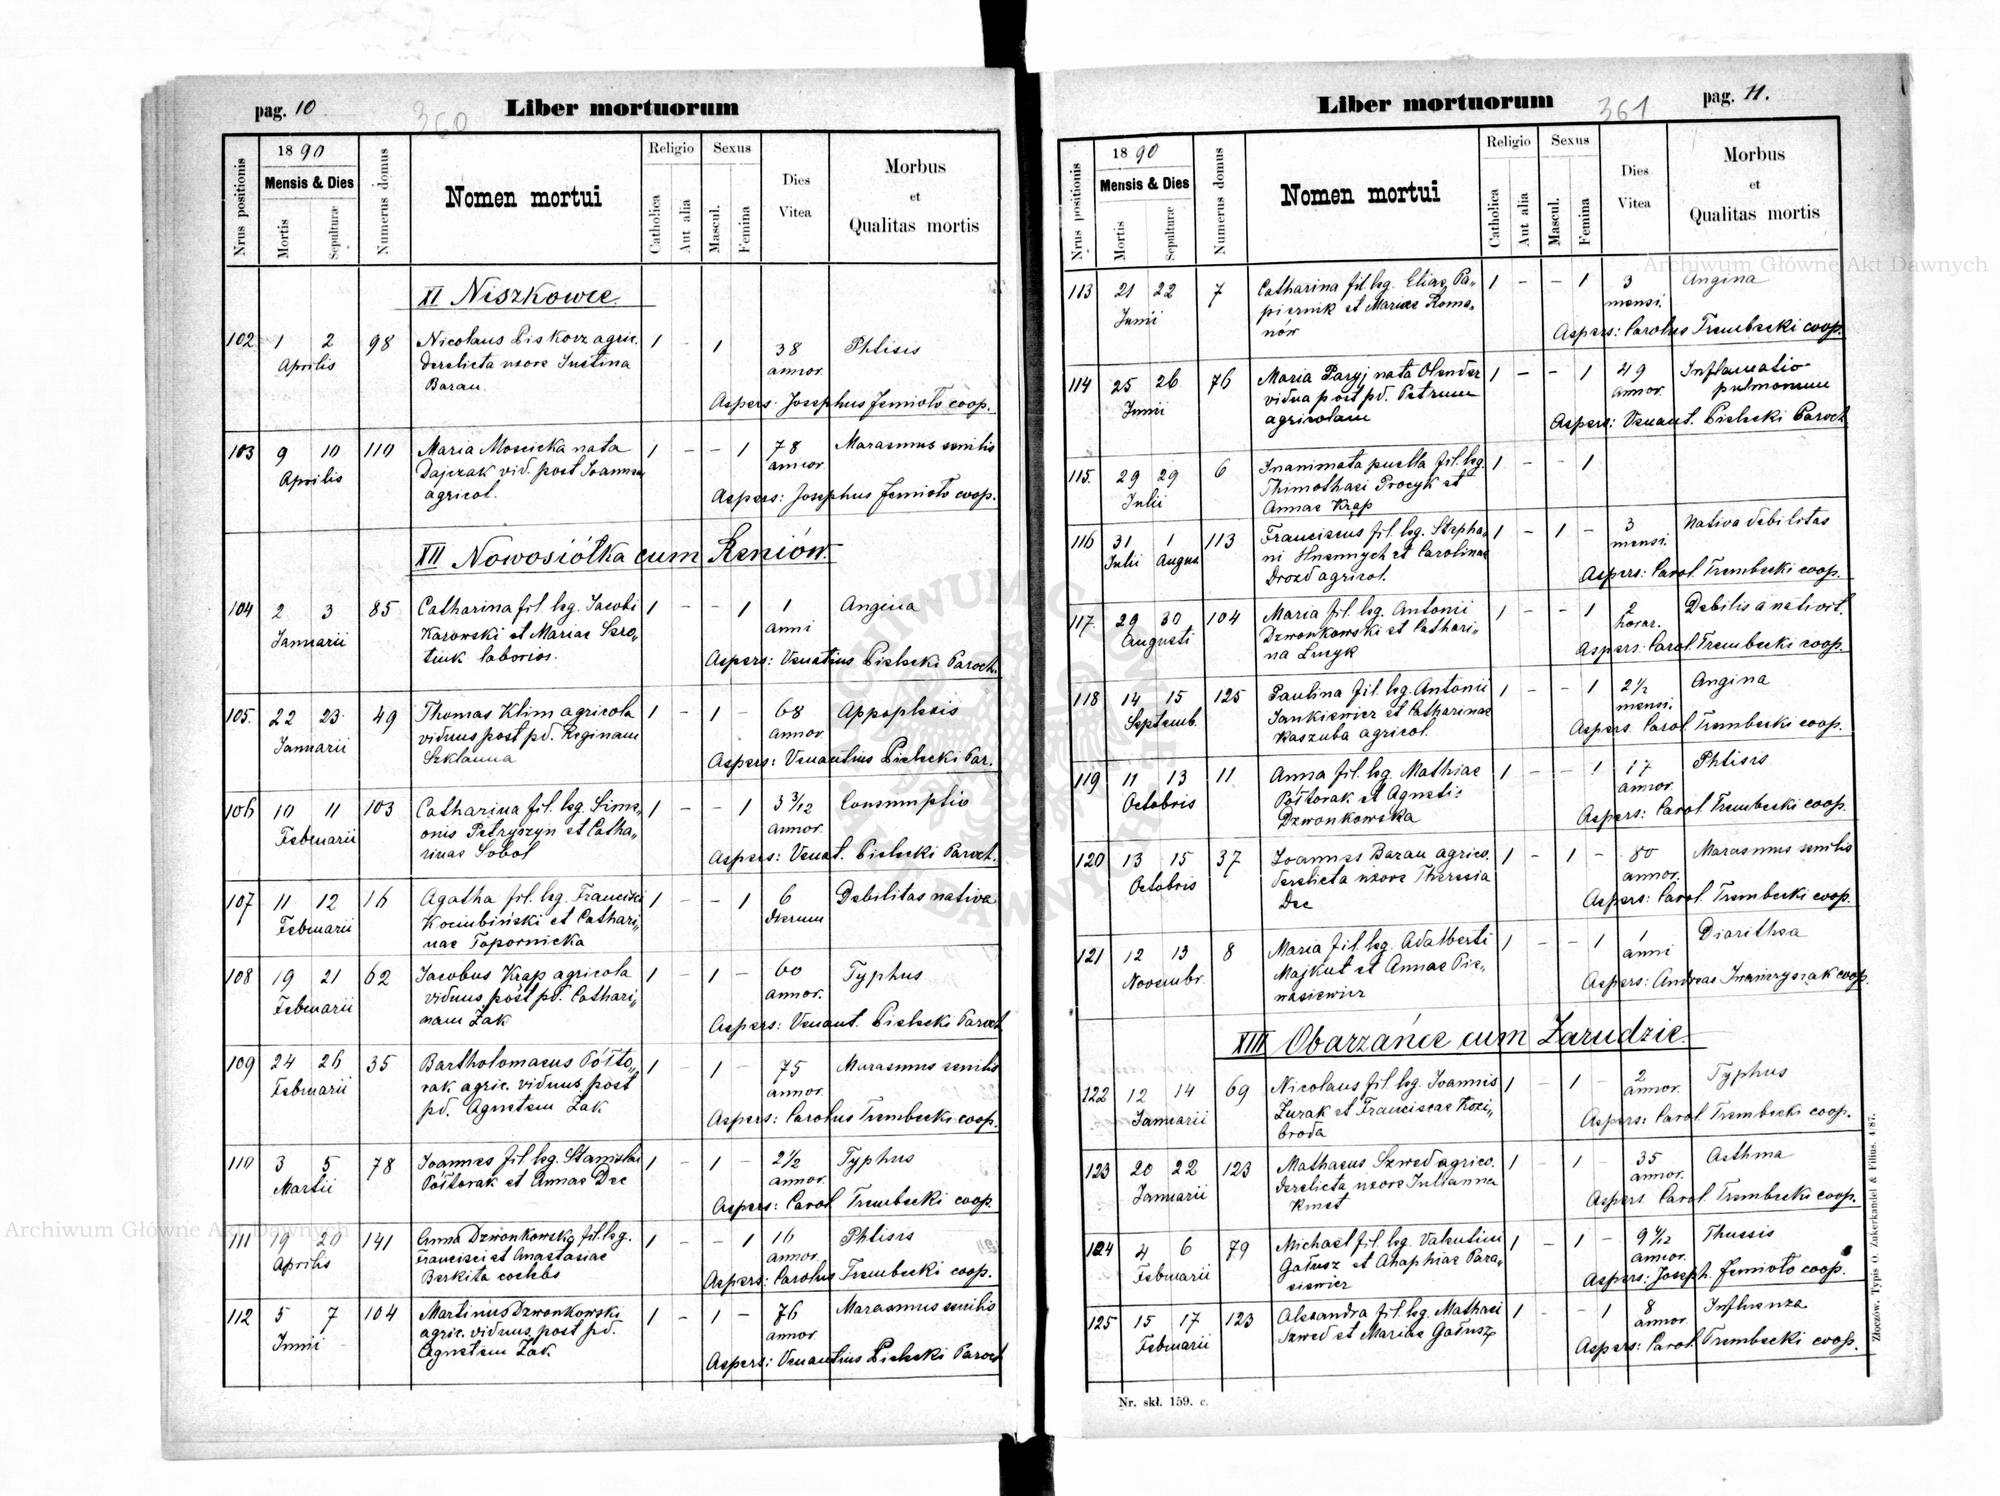 pag. 10
360
Liber mortuorum
Nrus positionis
1890
Mensis & Dies
Mortis
Sepulturæ
Numerus domus
Nomen mortui
Religio
Catholica
Aut alia
Sexus
Mascul.
Femina
Dies
Vitea
Morbus
et
Qualitas mortis
XI Niszkowce
102 1 2 98 Nicolaus Piskorz agric. 1 - 1 38 Phtisis
Aprilis derelicta uxore Justina annor.
Baran
Aspers: Josephus Jemioło coop.
103 9 10 110 Maria Moscicka nata 1 - - 1 78 Marasmus senilis
Aprilis Dajczak vid. post Joannem annor.
agricol.
Aspers: Josephus Jemioło coop.
XII Nowosiółka cum Reniów.
104 2 3 85 Catharina fil. leg. Jacobi 1 - - 1 1 Angina
Januarii Karowski et Mariae Szro„ anni
tiuk laborios.
Aspers: Venantius Pielecki Paroch.
105. 22 23 49 Thomas Klim agricola 1 - 1 - 68 Appoplexis
Januarii viduus post pd. Reginam annor.
Szklanna
Aspers: Venantius Pielecki Par.
106 10 11 103 Catharina fil. leg. Sime„ 1 - - 1 3 3/12 Consumptio
Februarii onis Petryszyn et Catha„ annor.
rinae Sobol
Aspers: Venat. Pielecki Paroch.
107 11 12 16 Agatha fil. leg. Francisci 1 - - 1 6 Debilitas nativa
Februarii Kociubiński et Cathari„ dierum
nae Topornicka
108 19 21 62 Jacobus Krap agricola 1 - 1 - 60 Typhus
Februarii viduus post pd. Cathari„ annor.
nam Żak
Aspers: Venant. Pielecki Paroch
109 24 26 35 Bartholomaeus Półto„ 1 - 1 - 75 Marasmus senilis
Februarii rak agric. viduus post annor.
pd. Agnetem Żak
Aspers: Carolus Trembecki coop.
110 3 5 78 Joannes fil. leg. Stanislai 1 - 1 - 2 1/2 Typhus
Martii Półtorak et Annae Dec annor.
Aspers: Carol Trembecki coop.
111 19 20 141 Anna Dzwonkowska fil. leg. 1 - - 1 16 Phtisis
Aprilis Francisci et Anastasiae annor.
Berkita coelebs
Aspers: Carolus Trembecki coop.
112 5 7 104 Martinus Dzwonkowski 1 - 1 - 76 Marasmus senilis
Junii agric. viduus post pd. annor.
Agnetem Żak
Aspers: Venantius Pielecki Paroch
Liber mortuorum
361
pag. 11.
Nrus positionis
1890
Mensis & Dies
Mortis
Sepulturæ
Numerus domus
Nomen mortui
Religio
Catholica
Aut alia
Sexus
Mascul.
Femina
Dies
Vitea
Morbus
et
Qualitas mortis
113 21 22 7 Catharina fil. leg. Eliae Pa„ 1 - - 1 3 Angina
Junii piernik et Mariae Roma„ mensi.
nów
Aspers: Carolus Trembecki coop.
114 25 26 76 Maria Paryj nata Olender 1 - - 1 49 Inflamatio
Junii vidua post pd. Petrum annor. pulmonum
agricolam
Aspers: Venant. Pielecki Paroch
115. 29 29 6 Inanimata puella fil. leg. 1 - 1
Julii Thimothaei Procyk et
Annae Krap
116 31 1 113 Franciscus fil. leg. Stepha„ 1 - 1 - 3 Nativa debilitas
Julii Augus. ni Hnennych et Carolinae mensi.
Drozd agricol.
Aspers: Carol. Trembecki coop.
117. 29 30 104 Maria fil. leg. Antonii 1 - - 1 2 Debilis a nativit.
Augusti Dzwonkowski et Cathari„ horar.
na Lucyk
Aspers: Carol. Trembecki coop.
118 14 15 125 Paulina fil. leg. Antonii 1 - - 1 2 1/2 Angina
Septemb. Jankiewicz et Catharinae mensi.
Kaszuba agricol.
Aspers. Carol Trembecki coop.
119 11 13 11 Anna fil. leg. Mathiae 1 - - 1 17 Phtisis
Octobris Półtorak et Agneti: annor.
Dzwonkowska
Aspers: Carol Trembecki coop.
120 13 15 37 Joannes Baran agrico. 1 - 1 - 80 Marasmus senilis
Octobris derelicta uxore Theresia annor.
Dec
Aspers: Carol. Trembecki coop.
121 12 13 8 Maria fil. leg. Adalberti 1 - - 1 1 Diarithea
Novembr. Majkut et Annae Pie„ anni
nasiewicz
Aspers: Andreas coop.
XIII Obarzańce cum Zarudzie.
122 12 14 69 Nicolaus fil. leg. Joannis 1 - 1 - 2 Typhus
Januarii Żurak et Franciscae Kozi„ annor.
broda
Aspers: Carol Trembecki coop.
123 20 22 123 Mathaeus Szwed agrico. 1 - 1 - 35 Asthma
Januarii derelicta uxore Julianna annor.
Kmet
Aspers Carol. Trembecki coop.
124 4 6 79 Michael fil. leg. Valentini 1 - 1 - 9 4/12 Thussis
Februarii Gałusz et Ahaphiae Para„ annor.
siewicz
Aspers: Joseph. Jemioło coop.
125 15 17 123 Alexandra fil. leg. Mathaei 1 - - 1 8 Influenza
Februarii Szwed et Mariae Gałusz annor.
Aspers: Carol Trembecki coop.
Nr. skł. 159. c.
Złoczów. Typis O. Zukerkandel & Filius. 4/87.
Archiwum Główne Akt Dawnych
Archiwum Główne Akt Dawnych